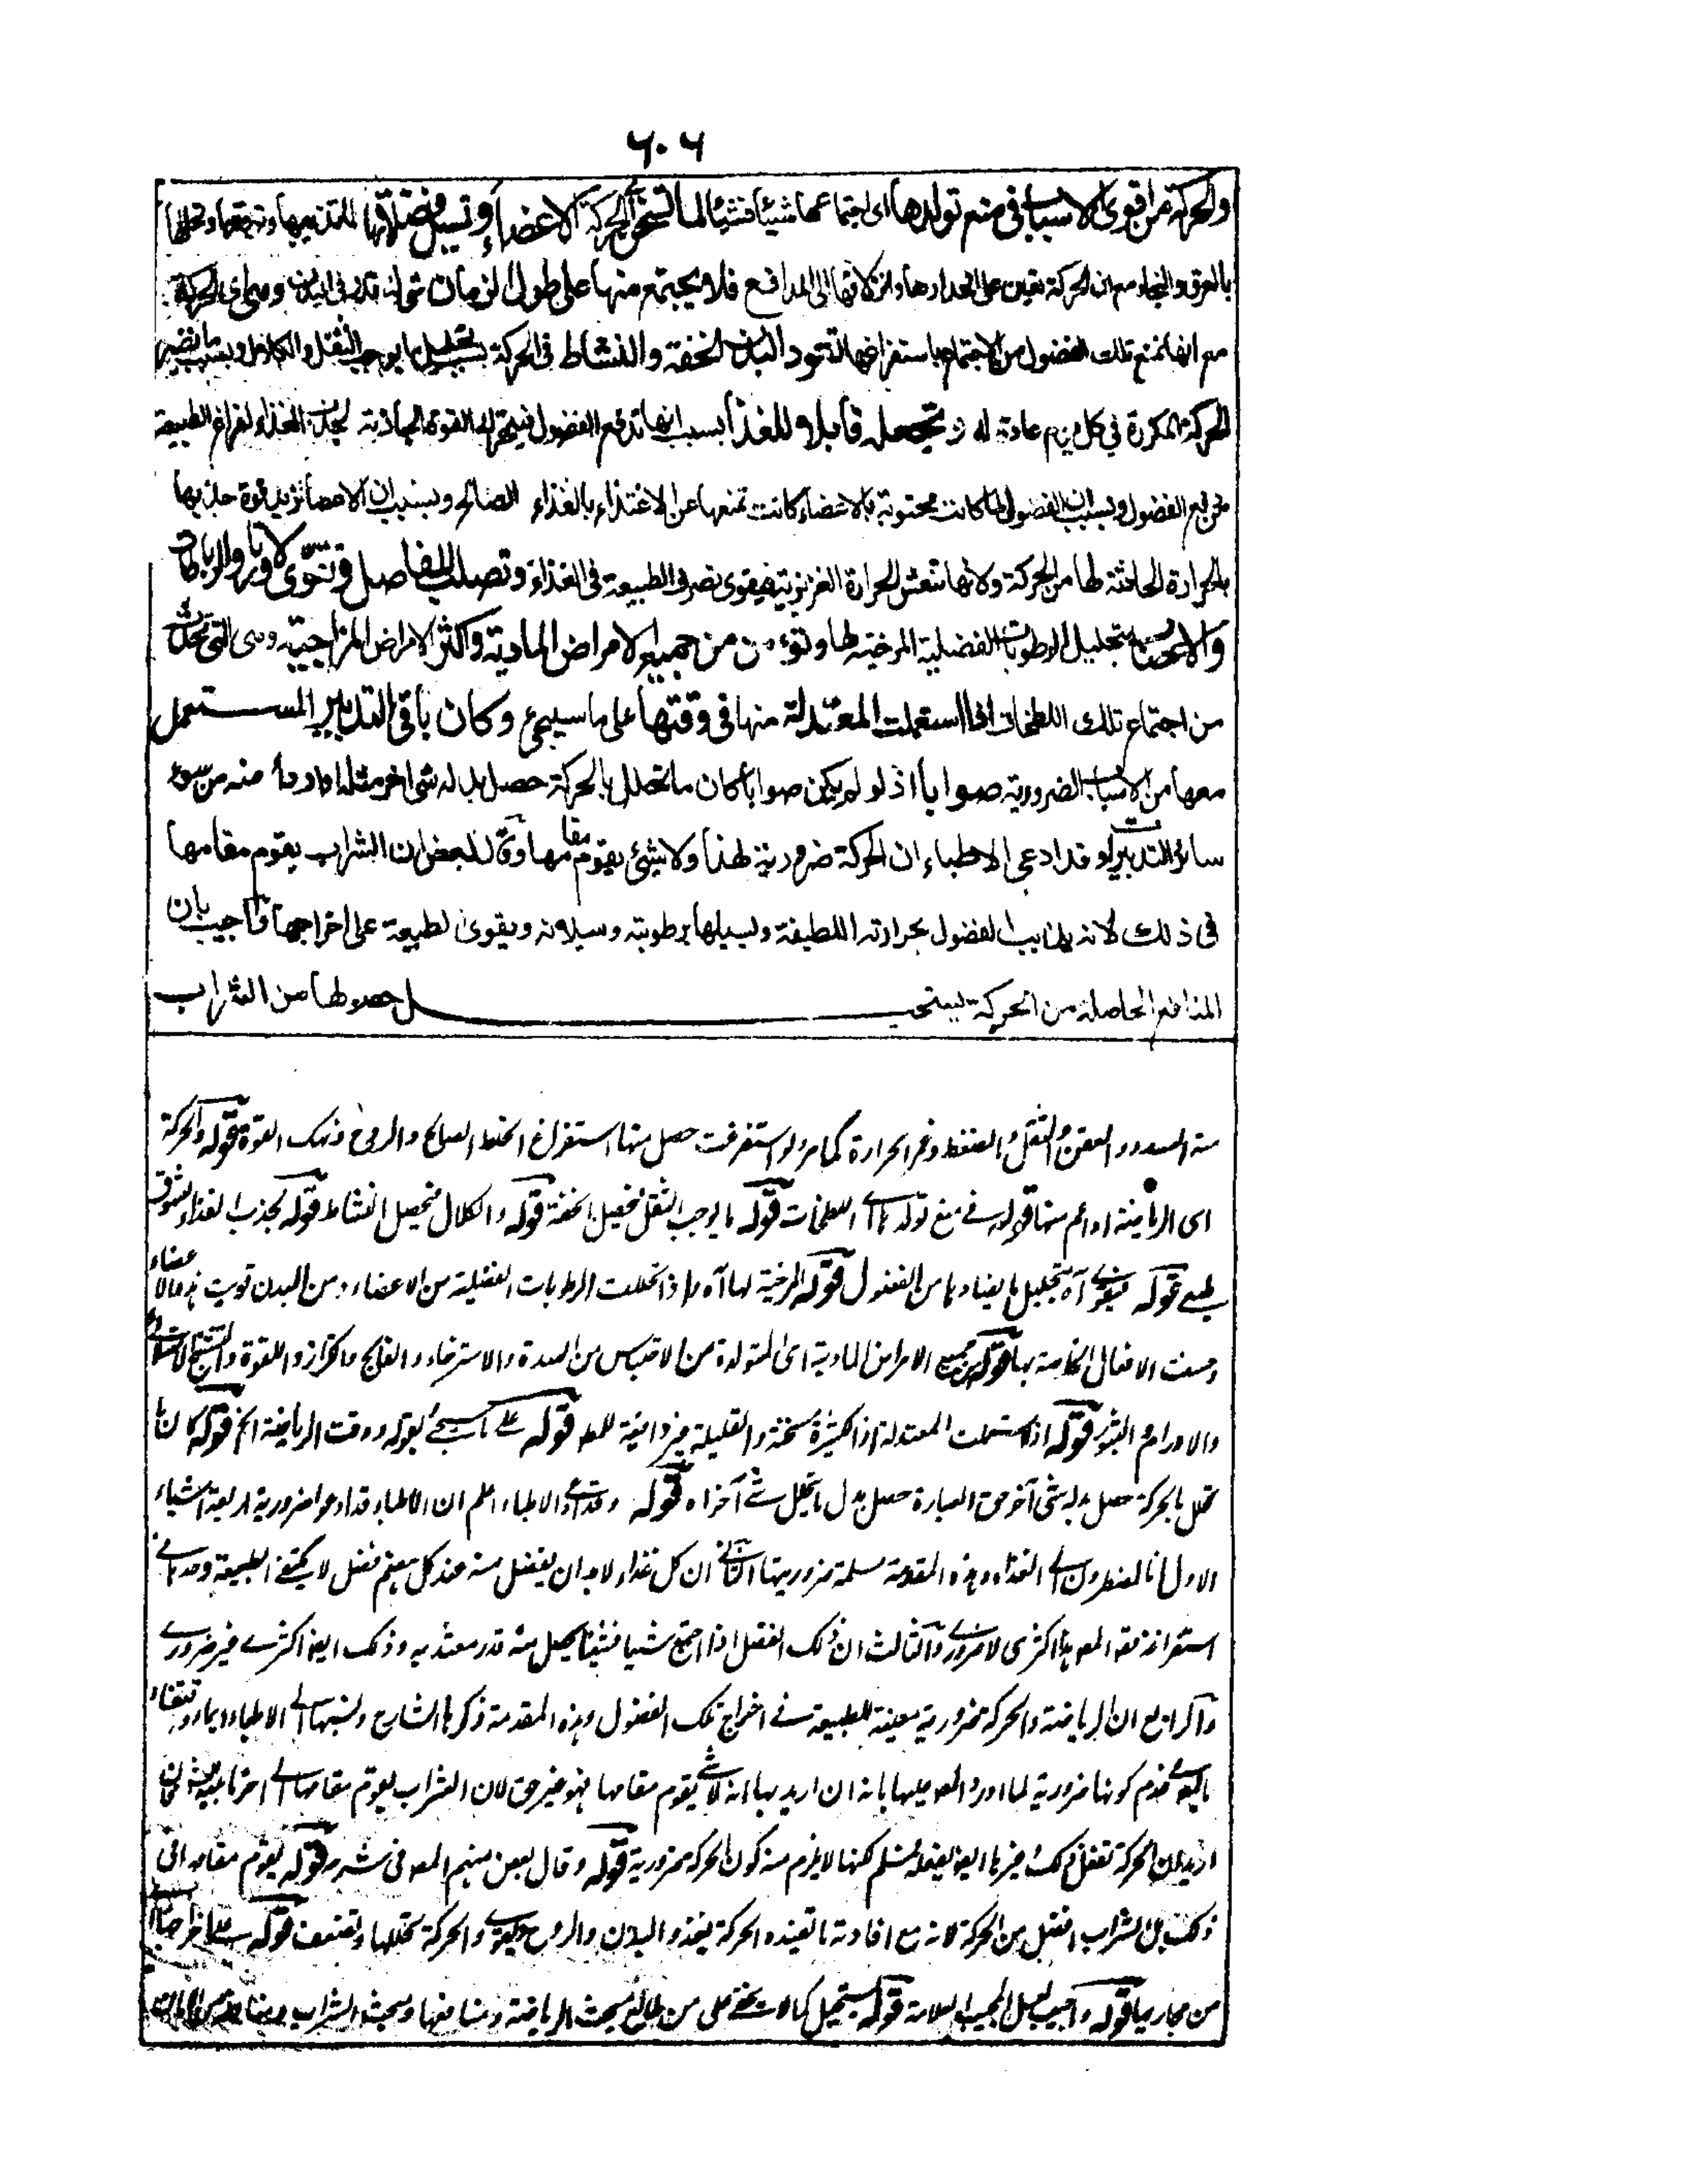 ٦٠٦
والحركة من اقوى الاسباب فى منع تولدها اى اجتماعها شيئا فشيئا لما تسخن الحركة الاعضاء وتسيل فضلاتها
بالعرق والبخار مع ان الحركة تعين على انحدارها وازلاقها الى المدافع فلا يجتمع منها على طول الزمان شئ له قدر فى البدن وهى اى الحركة
مع انها تمنع تلك الفضول من الاجتماع باستفراغها تعود البدن الخفة والنشاط فى الحركة بتحليل ما يوجب الثقل والكلال وبسبب ما تصير
الحركة المكررة فى كل يوم عادة له وتجعله قابلا للغذاء بسبب انها تدفع الفضول القوة الجاذبة لجذب الغذاء لفراغ الطبيعة
عن دفع الفضول وبسبب ان الفضول لما كانت محتوية بالاعضاء كانت تمنعها عن الاغتذاء بالغذاء الصالح وبسبب ان الاعضاء تزيد قوة جذبها
بالحرارة الحادثة لها من الحركة ولانها تنعش الحرارة الغريزية فيقوى تصرف الطبيعة فى الغذاء وتصلب المفاصل وتقوى الاوتار والرباطات
والاعصاب بتحليل الرطوبات الفضلية المرخية لها وتؤمن من جميع الامراض المادية واكثر الامراض المزاجية وهى التى تحدث
من اجتماع تلك اللطخات اذا استعملت المعتدلة منها فى وقتها على ما سيجئ وكان باقى التدبير المستعمل
معها من الاسباب الضرورية صوابا اذ لو لم يكن صوابا كان ما تحلل بالحركة حصل بدله شئ اخر مثله او اردأ منه من سوء
سائر التدبيرات وقد ادعى الاطباء ان الحركة ضرورية لهذا ولا شئ يقوم مقامها وقال بعض الشراب يقوم مقامها
فى ذلك لانه يذيب الفضول بحرارته اللطيفة ويسيلها برطوبته وسيلانه ويقوى الطبيعة على اخراجها واجيب بان
المنافع الحاصلة من الحركة يستحيل حصولها من الشراب
منه السدد والعفن والثقل والضغط وغمر الحرارة كما مر ولو استفرغت حصل منها استفراغ الخلط الصالح والروح ونهك القوة قوله والحركة
اى الرياضة او اعم منها قوله فى منع تولدها اى اللطخات قوله ما يوجب الثقل فيحصل الخفة قوله والكلال فيحصل النشاط قوله لجذب الغذاء
طبعى قوله بتحليل المرخية لها آه واذا تحللت الرطوبات الفضلية من الاعضاء ومن البدن قويت هذه الاعضاء
وحسنت الافعال الخاصة بها قوله من جميع الامراض المادية اى المتولدة من الاحتباس من السدة والاسترخاء والفالج والكزاز واللقوة والتشنج
والاورام والبثور قوله اذا استعملت المعتدلة اذ الكثيرة مسخنة والقليلة غير وافية قوله على ما سيجئ بقوله ووقت الرياضة الخ قوله كان ما
تحلل بالحركة حصل بدله شئ آخر حق العبارة حصل بدل ما تحلل شئ آخر اه قوله وقد ادعى الاطباء اعلم ان الاطباء قد ادعوا ضرورية اربعة اشياء
الاول انا مضطرون الى الغذاء وهذه المقدمة مسلمة ضروريتها الثانى ان كل غذاء لابد ان يفضل منه عند كل هضم فضل لا يكتفى الطبيعة وحدها فى
استفراغه اكثرى لا ضرورى والثالث ان ذلك الفضل اذا اجتمع شيئا فشيئا يحصل منه قدر معتد به وذلك ايضا اكثرى غير ضرورى
والرابع ان الرياضة والحركة ضرورية معينة للطبيعة فى اخراج تلك الفضول وهذه المقدمة ذكرها الشارح ونسبها الى الاطباء
عدم كونها ضرورية لما اورد المص عليها بانه ان اريد بها انه لا شئ يقوم مقامها فهو غير حق لان الشراب يقوم مقامها
اريد ان الحركة تفعل ذلك وغيرها ايضا يفعله فمسلم لكنها لا يلزم منه كون الحركة ضرورية قوله وقال بعض منهم المص فى شرحه قوله يقوم مقامها فى
ذلك بل الشراب افضل من الحركة لانه مع افادته ما تفيده الحركة يغذو البدن والروح ويقوى والحركة تحللها وتضعف قوله على اخراجها
من مجاريها قوله واجيب لعل المجيب العلامة قوله يستحيل كما لا يخفى على من طالع مبحث الرياضة ومنافعها ومبحث الشراب